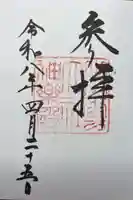 参拝
令和八年四月二十五日